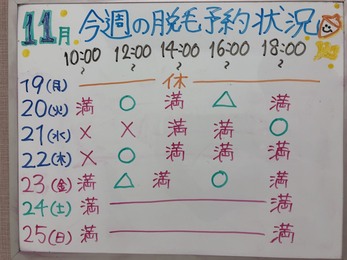 11月 今週の脱毛予約状況
10:00 12:00 14:00 16:00 18:00
~ ~ ~ ~ ~
19(月) 休
20(火) 満 ○ 満 △ 満
21(水) × × 満 満 ○
22(木) × ○ 満 満 満
23(金) 満 △ 満 ○ 満
24(土) 満 満
25(日) 満 満